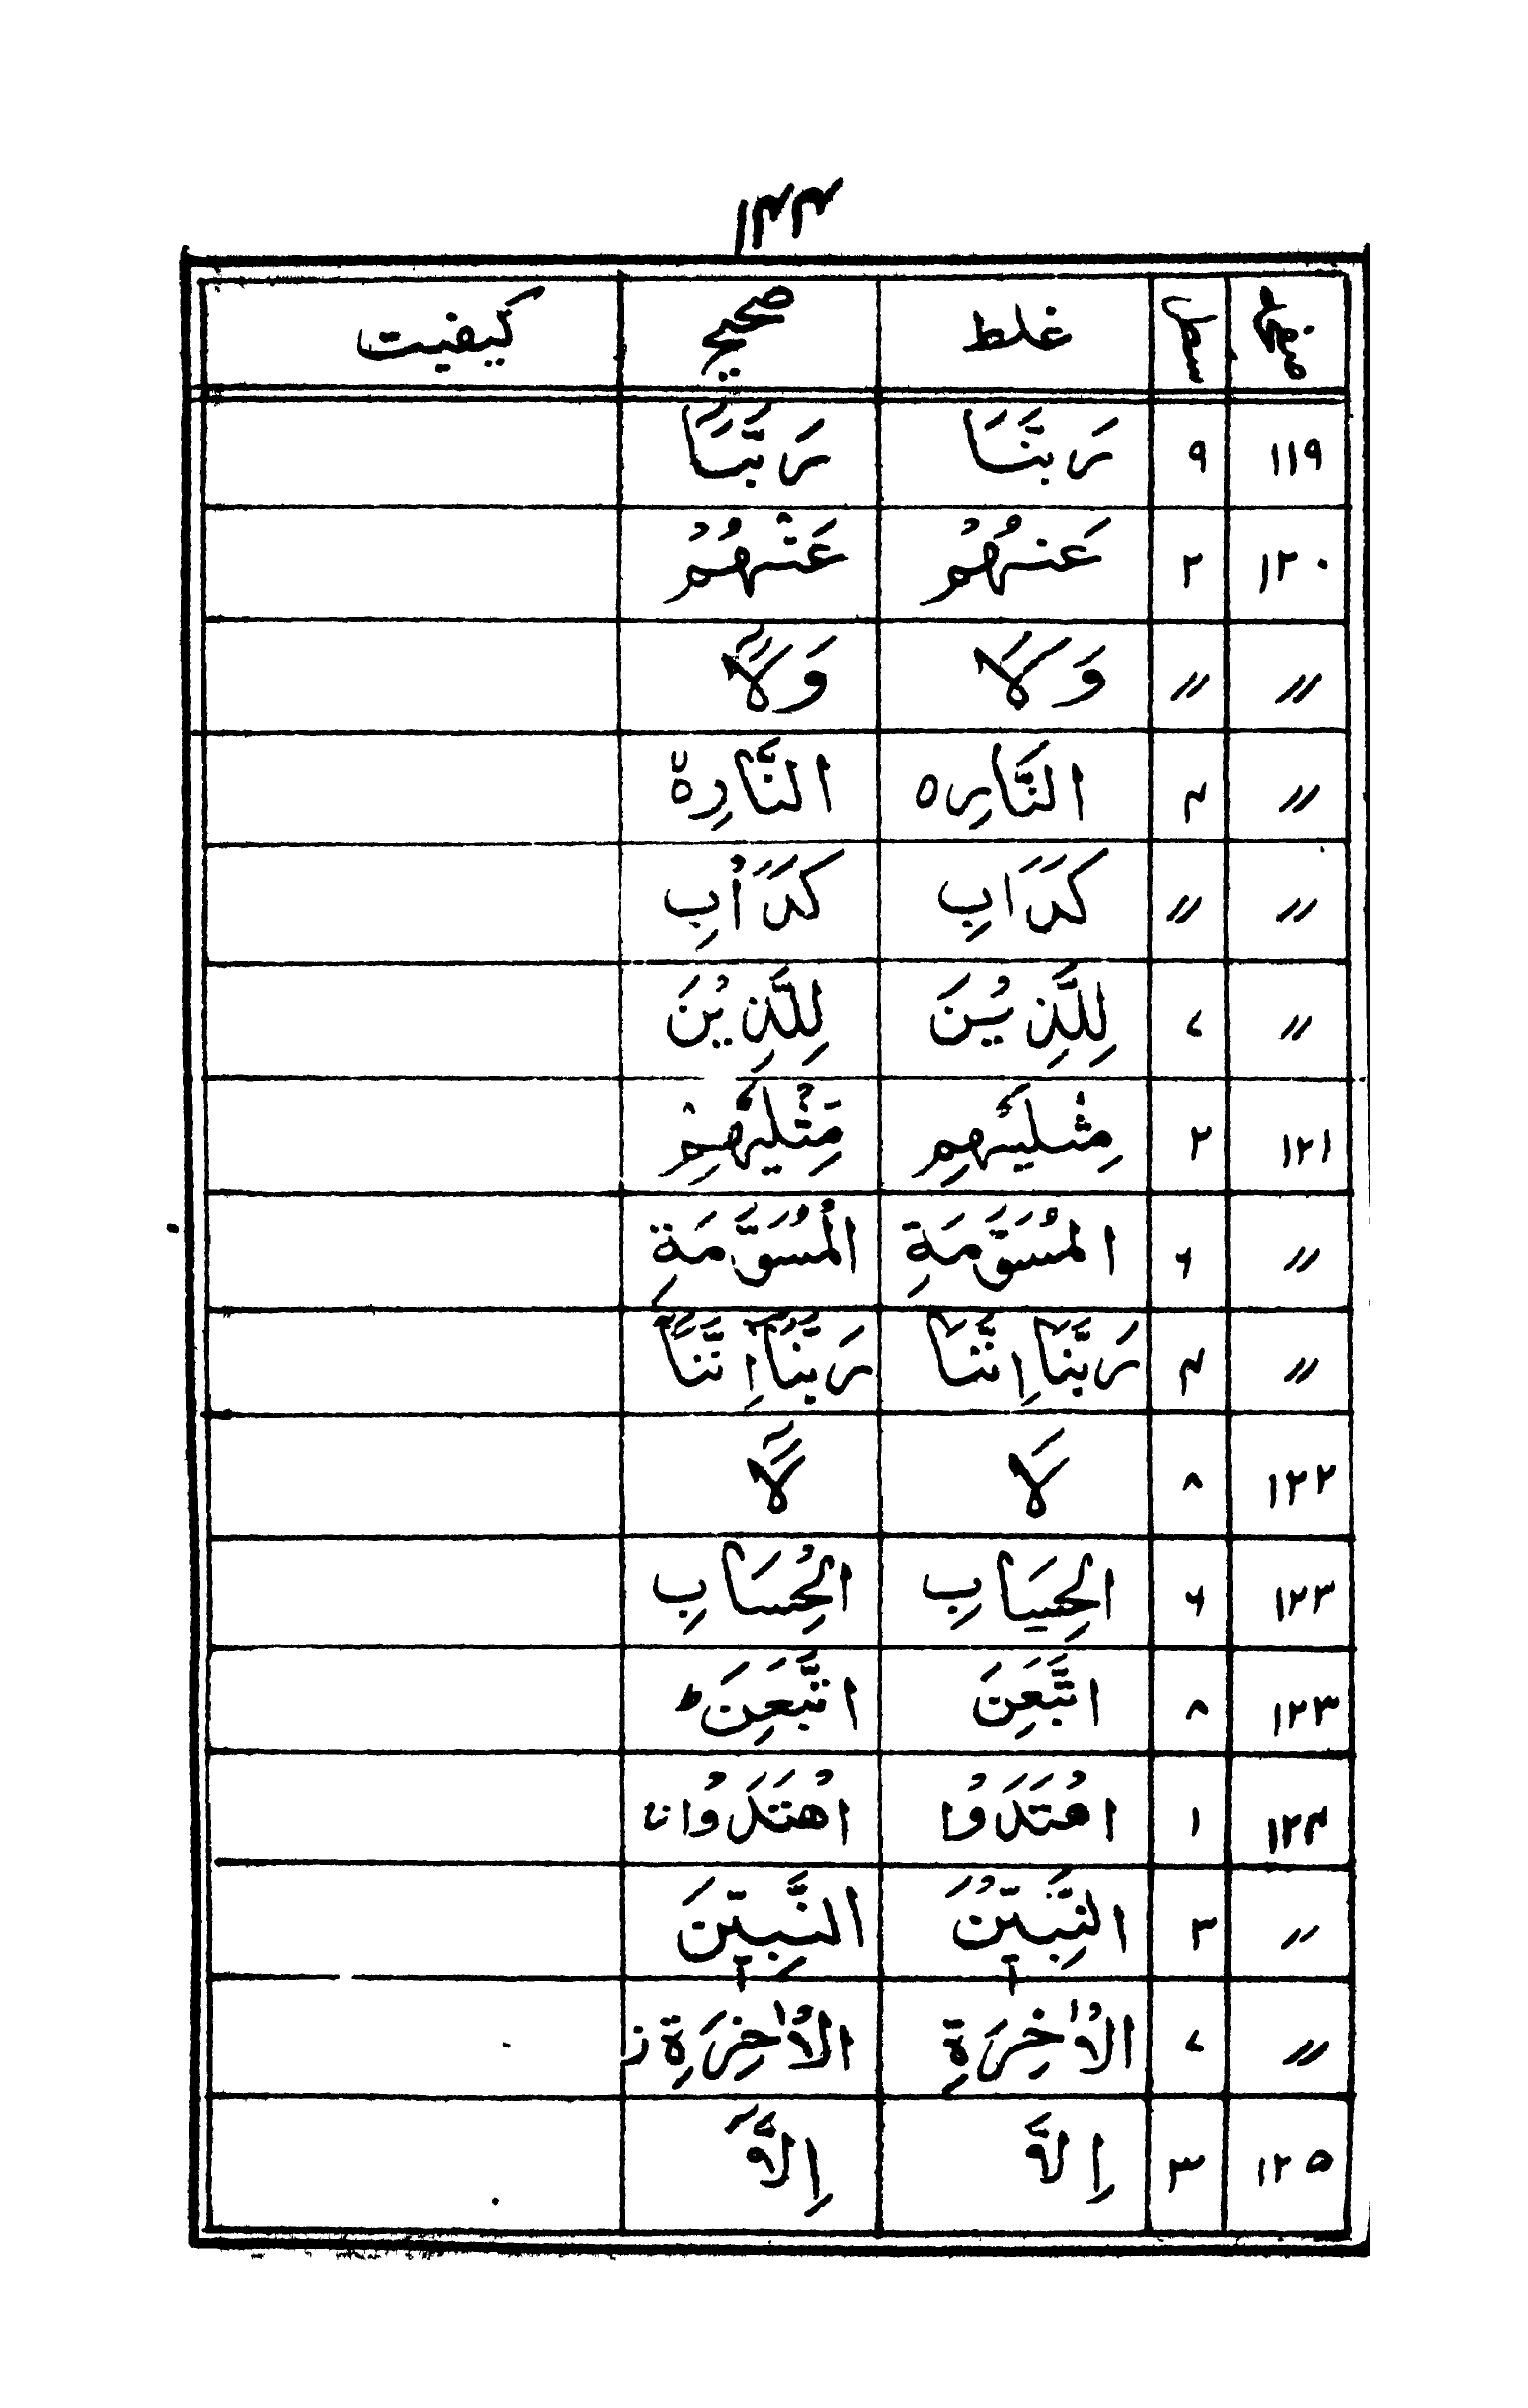 ۱۴۴
صفحہ سطر غلط صحیح کیفیت
۱۱۹ ۹ رَبَنَّا رَبَّنَآ
۱۲۰ ۲ عَنهُمُ عَنْهُمُ
〃 〃 وَلَا وَلَآ
〃 ۴ النَّارِہ النَّارِ ۃ
〃 〃 كَدَابِ كَدَاْبِ
〃 ۷ لِلَّذِيْنَ لِلَّذِيْنَ
۱۲۱ ۲ مِثْلَيهِم مِّثْلَيْهِمْ
〃 ۶ المُسَوَّمَةِ الْمُسَوَّمَةِ
〃 ۴ رَبَّنَا اِنَّنَا رَبَّنَآ اِنَّنَآ
۱۲۲ ۸ لَا لَآ
۱۲۳ ۶ الحِسَابِ الْحِسَابِ
۱۲۳ ۸ اتَّبَعَنِ اتَّبَعَنِ ط
۱۲۴ ۱ اهْتَدَوْا اهْتَدَوْا
〃 ۳ النَّبِيّٖنَ النَّبِيّٖنَ
〃 ۷ الْاٰخِرَةِ الْاٰخِرَةِ ز
۱۲۵ ۳ اِلَّا اِلَّآ